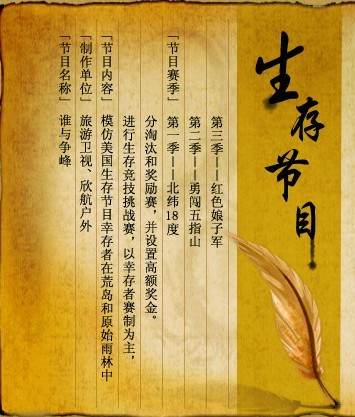 生存节目
「节目名称」 谁与争峰
「制作单位」 旅游卫视、欣航户外
「节目内容」 模仿美国生存节目幸存者在荒岛和原始雨林中
进行生存竞技挑战赛，以幸存者赛制为主，
分淘汰和奖励赛，并设置高额奖金。
「节目赛季」 第一季——北纬18度
第二季——勇闯五指山
第三季——红色娘子军